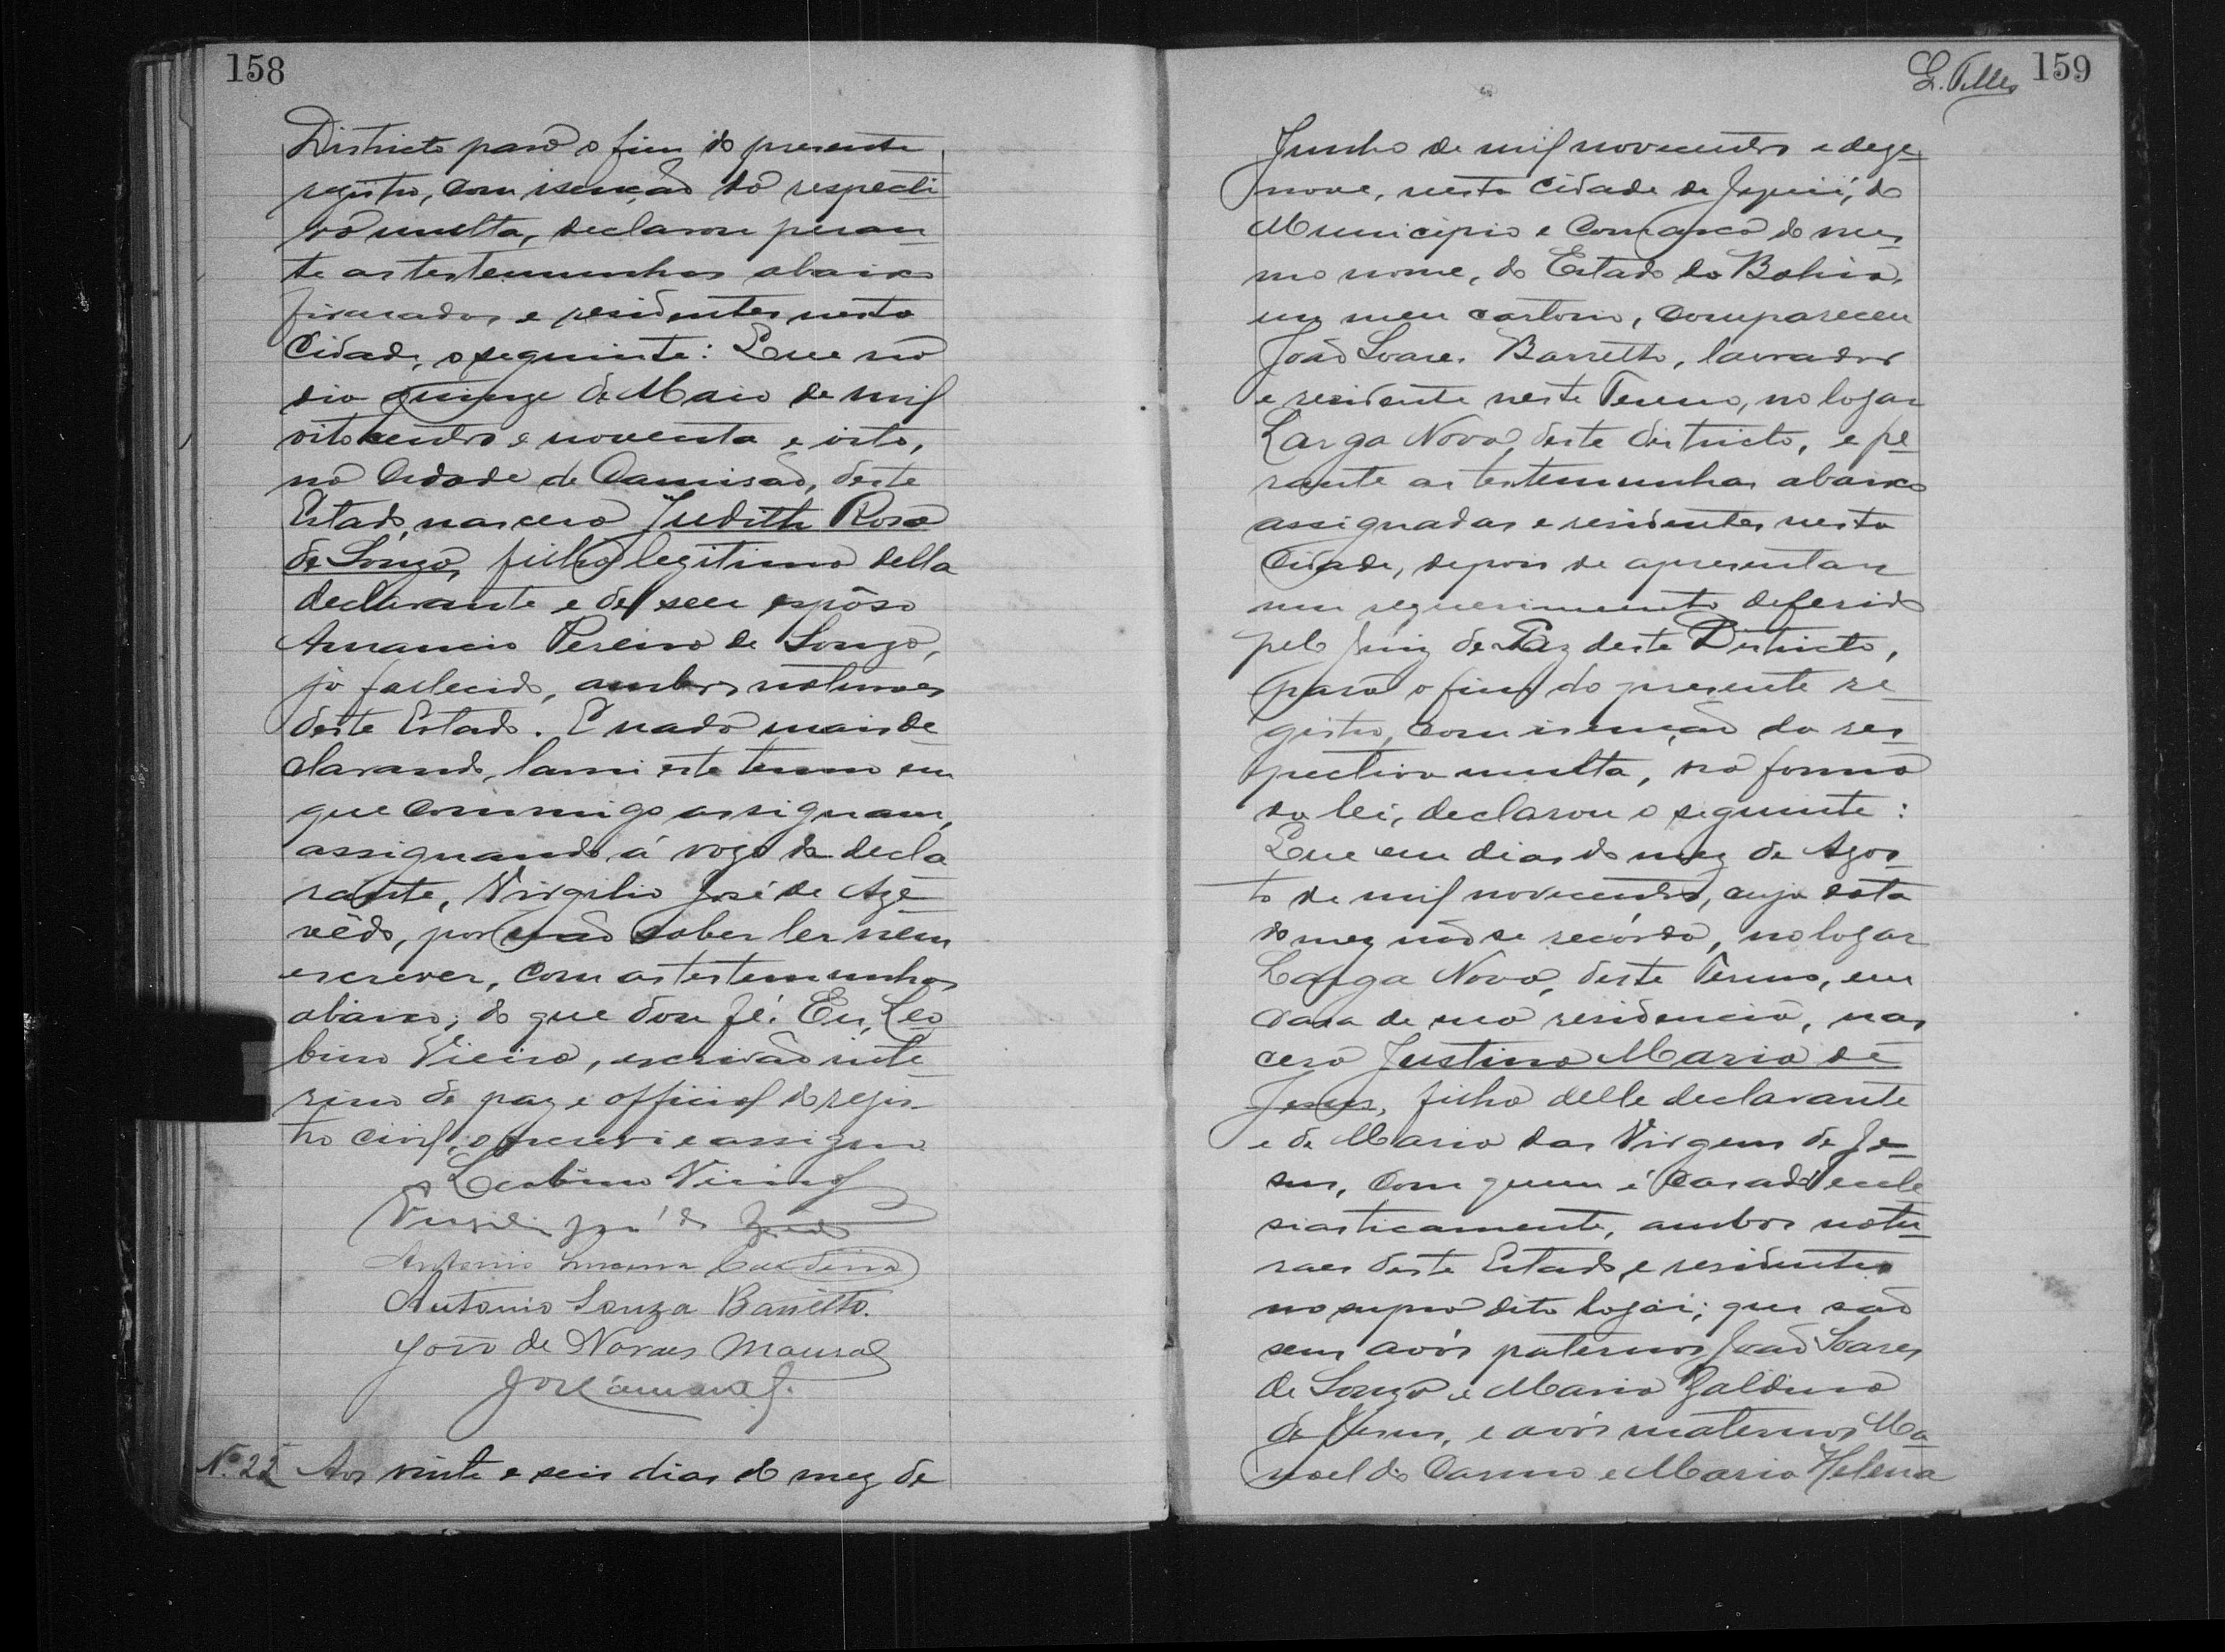 158
Districto para o fim do presente
registro, com isenção da respecti
va multa, declarou peran-
te as testemunhas abaixo
firmadas e residentes nesta
Cidade, o seguinte: Que no
dia quinze de Maio de mil
oitocentos e noventa e oito,
na Cidade de Camisão, deste
Estado, nasceu Judith Rosa
de Souza, filha legitima della
declarante e de seu espôso
Amancio Pereira de Souza,
já fallecido, ambos naturaes
deste Estado. E nada mais de-
clarando, lavrei este termo em
que commigo assignam,
assignando á rogo da decla
rante, Virgilio José de Aze-
vêdo, por não saber ler nem
escrever, com as testemunhas
abaixo; do que dou fé. Eu, Leo-
bino Vieira, escrivão inte-
rino de paz e official do regis-
tro civil, o escrevi e assigno
Leobino Vieira
Virgilio José de
Antonio
Antonio Souza Barretto.
João de Novaes
Nº 22 Aos vinte e seis dias do mez de
159
L. Telles
Junho de mil novecentos e deze-
nove, nesta Cidade de Jequié, do
Municipio e Comarca do mes-
mo nome, do Estado da Bahia,
em meu cartorio, compareceu
João Soares Barretto, lavrador
e residente neste Termo, no logar
Larga Nova, deste districto, e pe-
rante as testemunhas abaixo
assignadas e residentes nesta
Cidade, depois de apresentar
um requerimento deferido
pelo Juiz de Paz deste Districto,
para o fim do presente re-
gistro, com isenção da res-
pectiva multa, na forma
da lei, declarou o seguinte:
Que em dias do mez de Agos-
to de mil novecentos, cuja data
do mez não se recórda, no logar
Larga Nova, deste Termo, em
casa de sua residencia, nas
ceu Justina Maria de
Jesus, filha delle declarante
e de Maria das Virgens de Je-
sus, com quem é casado eccle
siasticamente, ambos natu-
raes deste Estado, e residentes
no supra dito logar; que são
seus avós paternos João Soares
de Souza e Maria Galdina
de Jesus, e avós maternos Ma-
noel do Carmo e Maria Helena